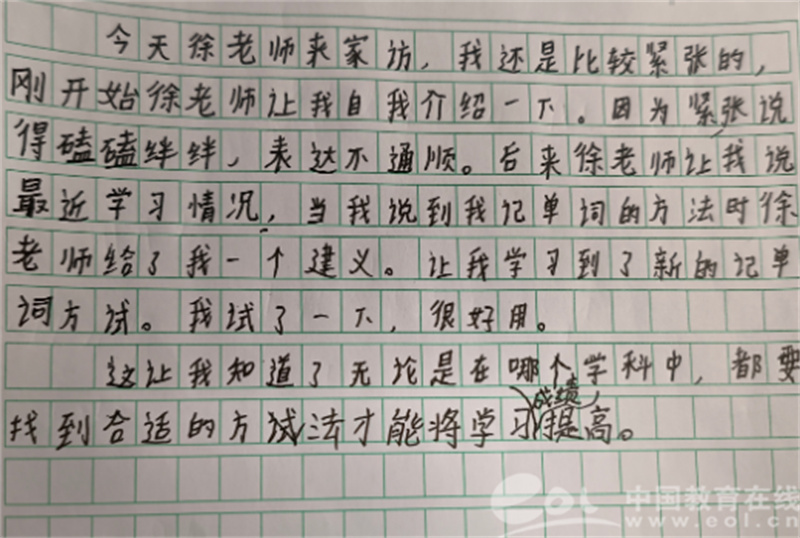 今天徐老师来家访，我还是比较紧张的，
刚开始徐老师让我自我介绍一下。因为紧张说
得磕磕绊绊，表达不通顺。后来徐老师让我说
最近学习情况，当我说到我记单词的方法时徐
老师给了我一个建义。让我学习到了新的记单
词方试。我试了一下，很好用。
这让我知道了无论是在哪个学科中，都要
找到合适的方法才能将学习成绩提高。
eol 中国教育在线
www.eol.cn